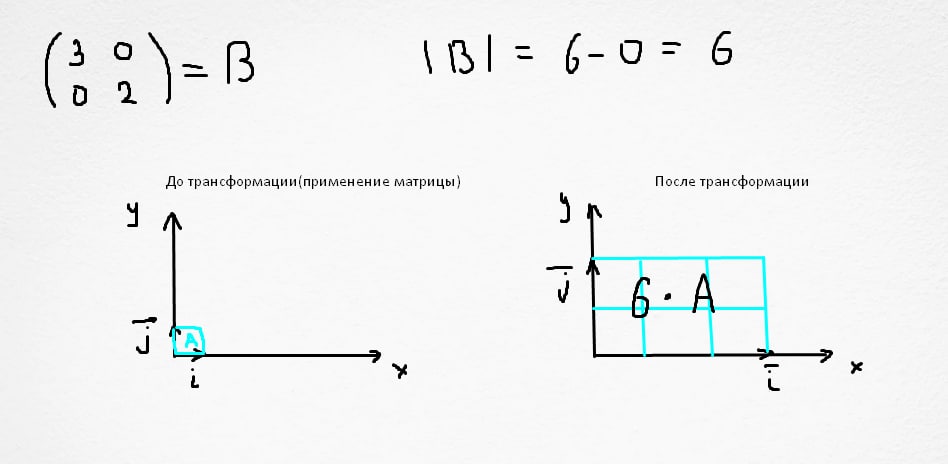 (3 0
0 2) = B
|B| = 6 - 0 = 6
До трансформации(применение матрицы)
y
j
A
i
x
После трансформации
y
j
6 · A
i
x